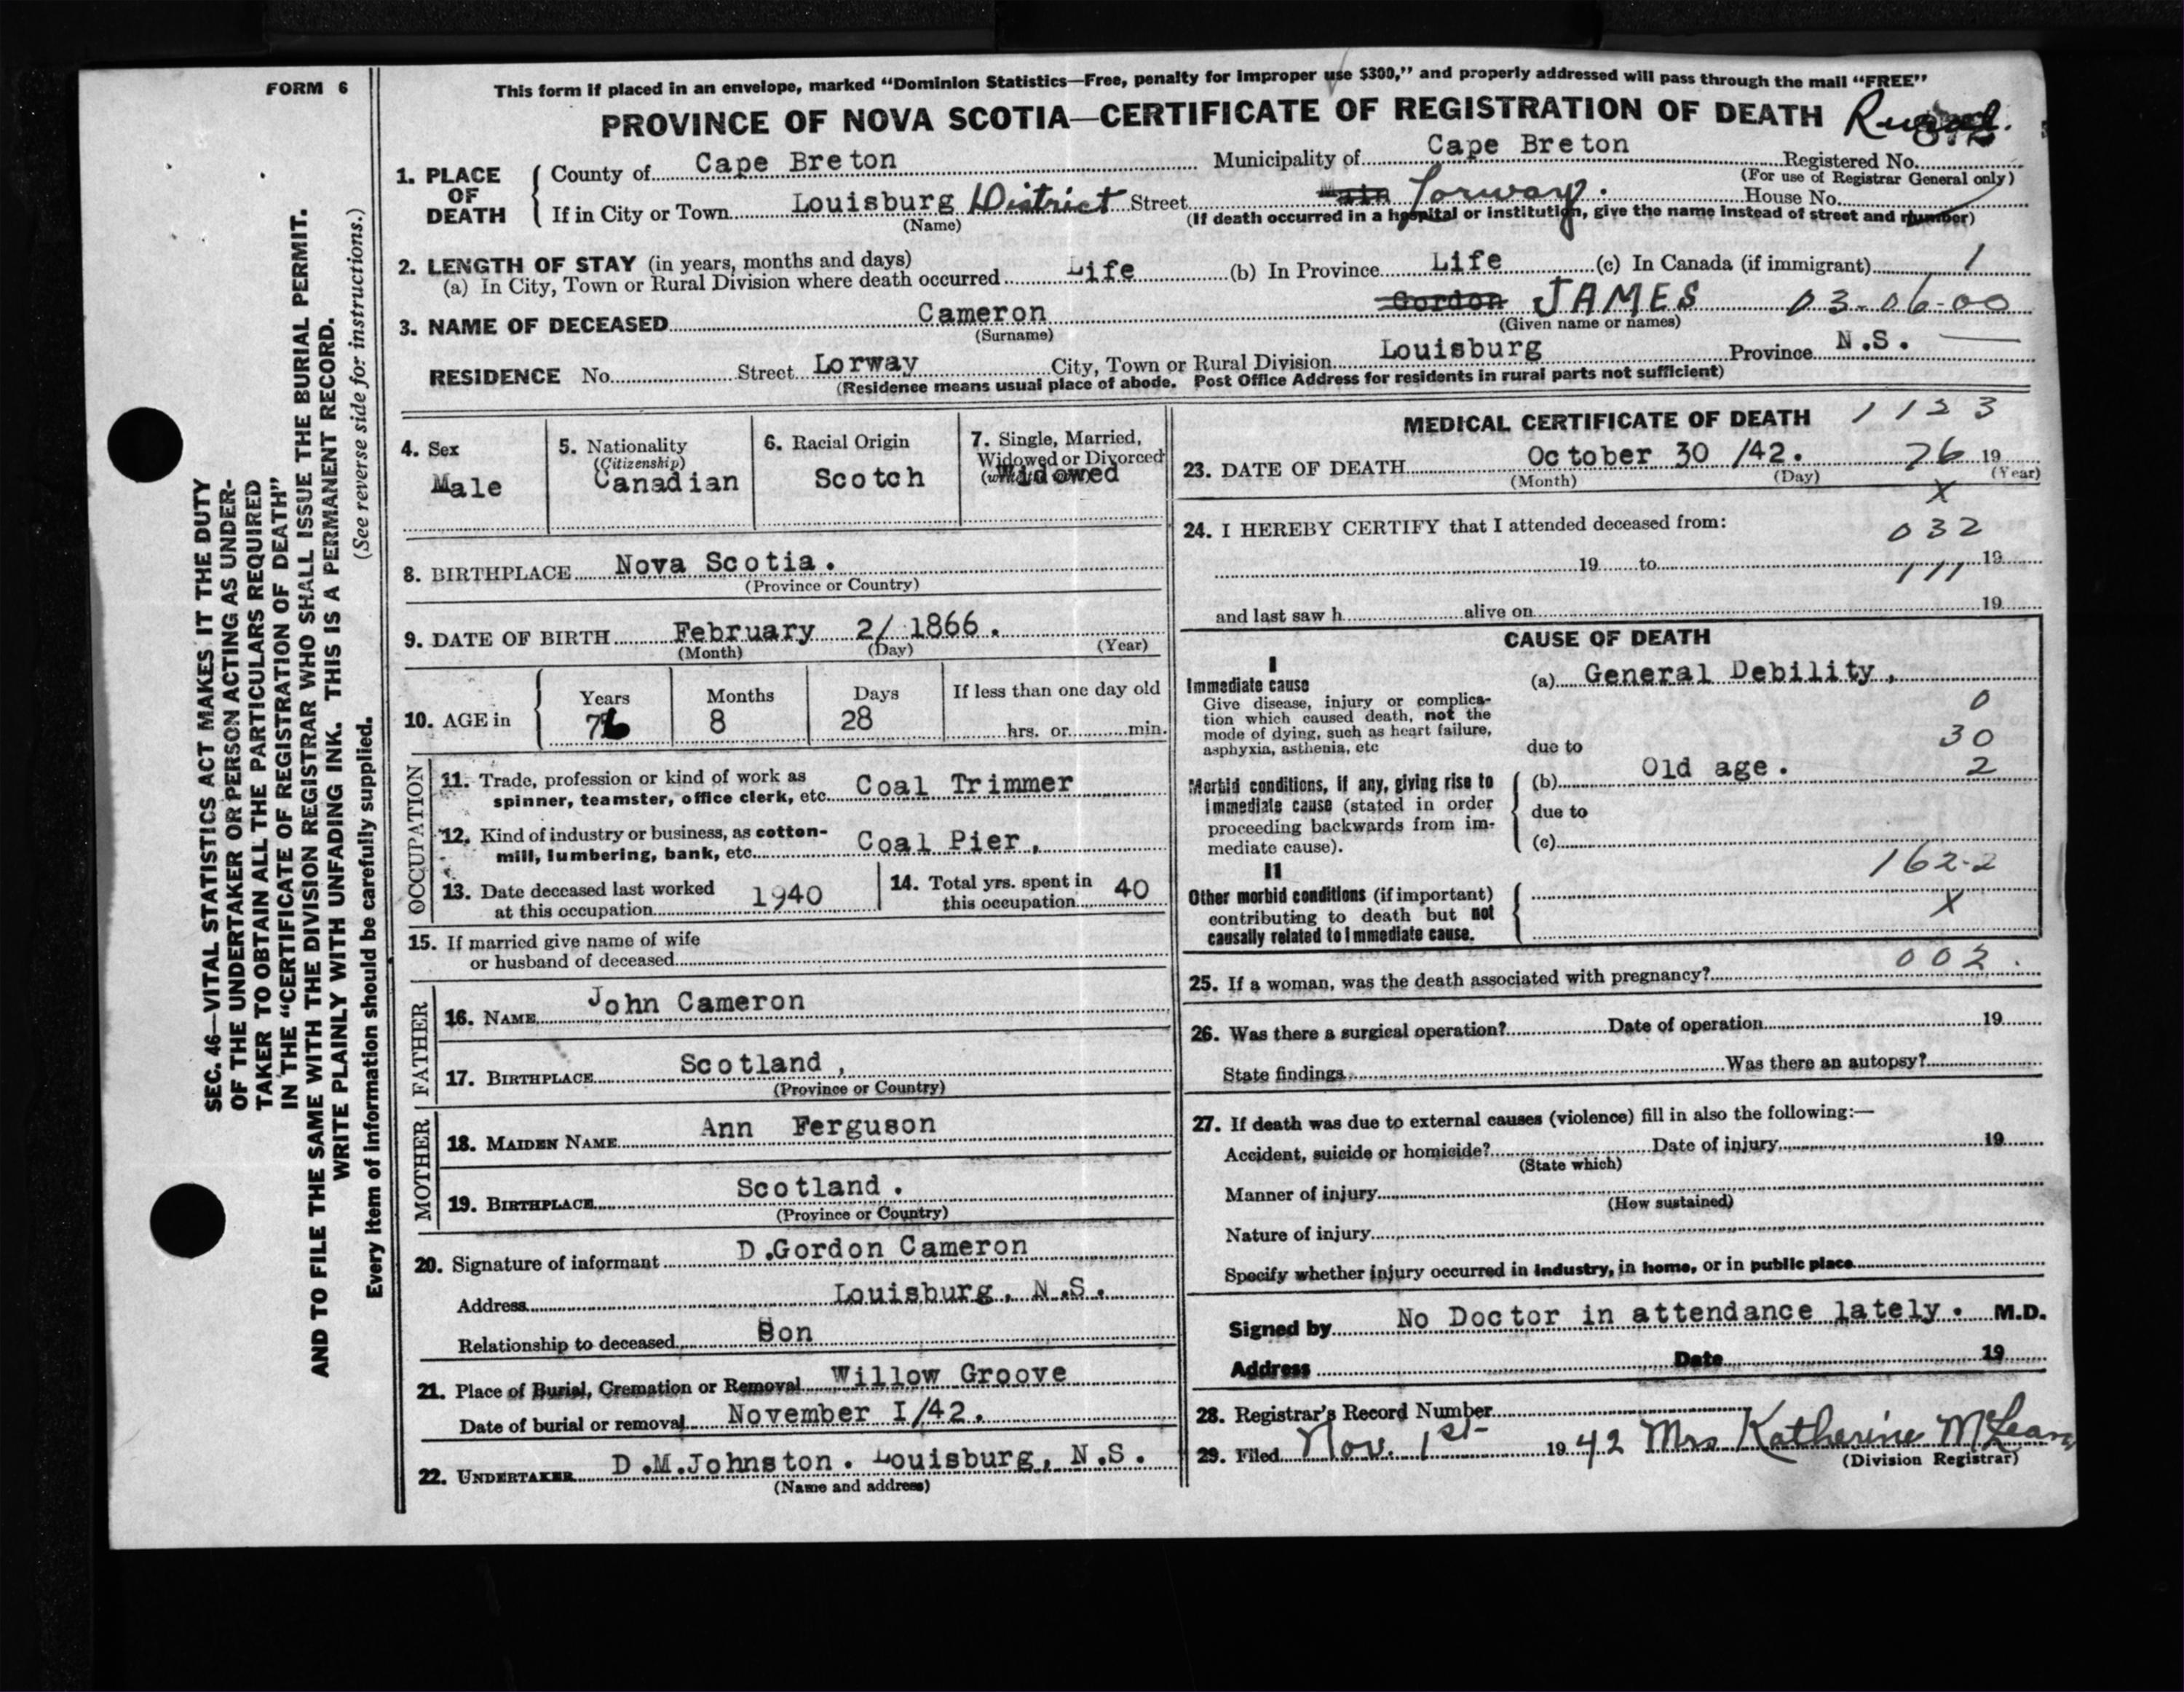 FORM 6
This form if placed in an envelope, marked “Dominion Statistics—Free, penalty for improper use $300,” and properly addressed will pass through the mail “FREE”
PROVINCE OF NOVA SCOTIA—CERTIFICATE OF REGISTRATION OF DEATH
1. PLACE OF DEATH
County of Cape Breton Municipality of Cape Breton Registered No.
(For use of Registrar General only)
If in City or Town Louisburg District Street Main Lorway. House No.
(Name) (If death occurred in a hospital or institution, give the name instead of street and number)
2. LENGTH OF STAY (in years, months and days)
(a) In City, Town or Rural Division where death occurred Life (b) In Province Life (c) In Canada (if immigrant) 1
3. NAME OF DECEASED Cameron Gordon JAMES 03-06-00
(Surname) (Given name or names)
RESIDENCE No. Street Lorway City, Town or Rural Division Louisburg Province N.S. —
(Residence means usual place of abode. Post Office Address for residents in rural parts not sufficient)
4. Sex
Male
5. Nationality
(Citizenship)
Canadian
6. Racial Origin
Scotch
7. Single, Married,
Widowed or Divorced
Widowed
8. BIRTHPLACE Nova Scotia.
(Province or Country)
9. DATE OF BIRTH February 2/ 1866.
(Month) (Day) (Year)
10. AGE in
Years Months Days If less than one day old
76 8 28 hrs. or min.
OCCUPATION
11. Trade, profession or kind of work as
spinner, teamster, office clerk, etc. Coal Trimmer
12. Kind of industry or business, as cotton-
mill, lumbering, bank, etc. Coal Pier,
13. Date deceased last worked
at this occupation 1940
14. Total yrs. spent in
this occupation 40
15. If married give name of wife
or husband of deceased
FATHER
16. NAME John Cameron
17. BIRTHPLACE Scotland,
(Province or Country)
MOTHER
18. MAIDEN NAME Ann Ferguson
19. BIRTHPLACE Scotland.
(Province or Country)
20. Signature of informant D.Gordon Cameron
Address Louisburg, N.S.
Relationship to deceased Son
21. Place of Burial, Cremation or Removal Willow Groove
Date of burial or removal November I/42.
22. UNDERTAKER D.M.Johnston. Louisburg, N.S.
(Name and address)
MEDICAL CERTIFICATE OF DEATH 1123
23. DATE OF DEATH October 30 /42. 76 19
(Month) (Day) (Year)
X
24. I HEREBY CERTIFY that I attended deceased from: 032
19 to 111 19
and last saw h alive on 19
CAUSE OF DEATH
I
Immediate cause
Give disease, injury or complica-
tion which caused death, not the
mode of dying, such as heart failure,
asphyxia, asthenia, etc
(a) General Debility,
0
due to 30
Morbid conditions, if any, giving rise to
immediate cause (stated in order
proceeding backwards from im-
mediate cause).
(b) Old age. 2
due to
(c)
162-2
II
Other morbid conditions (if important)
contributing to death but not
causally related to immediate cause.
X
002.
25. If a woman, was the death associated with pregnancy?
26. Was there a surgical operation? Date of operation 19
State findings Was there an autopsy?
27. If death was due to external causes (violence) fill in also the following:—
Accident, suicide or homicide? Date of injury 19
(State which)
Manner of injury
(How sustained)
Nature of injury
Specify whether injury occurred in industry, in home, or in public place
Signed by No Doctor in attendance lately. M.D.
Address Date 19
28. Registrar's Record Number
29. Filed Nov. 1st 1942 Mrs Katherine McLean
(Division Registrar)
SEC. 46—VITAL STATISTICS ACT MAKES IT THE DUTY
OF THE UNDERTAKER OR PERSON ACTING AS UNDER-
TAKER TO OBTAIN ALL THE PARTICULARS REQUIRED
IN THE “CERTIFICATE OF REGISTRATION OF DEATH”
AND TO FILE THE SAME WITH THE DIVISION REGISTRAR WHO SHALL ISSUE THE BURIAL PERMIT.
WRITE PLAINLY WITH UNFADING INK. THIS IS A PERMANENT RECORD.
(See reverse side for instructions.)
Every item of information should be carefully supplied.